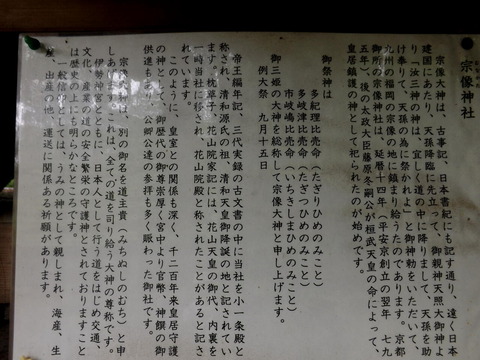 宗像神社
宗像大神は、古事記、日本書紀にも記す通り、遠く日本
建国にあたり、天孫降臨に先立って、御親神天照大御神よ
り「汝三神の神は、宜しく道の中に降りまして、天孫を助
け奉りて、天孫の為に祭かれよ」と御神勅をいただいて、
九州の福岡宗像の地に鎮まり給うたのであります。京都
御所の宗像神社は、延暦十四年(平安京創立の翌年 七九
五年)、後の太政大臣藤原冬嗣公が桓武天皇の命によって、
皇居鎮護の神として祀られたのが始めです。
御祭神は
多紀理比売命(たぎりひめのみこと)
多岐津比売命(たぎつひめのみこと)
市岐嶋比売命(いちきしまひめのみこと)
御三姫の大神を総称して宗像大神と申し上げます。
例大祭 九月十五日
帝王編年記、三代実録等の古文書の中に当社を小一条殿と
称され、清和源氏の祖、清和天皇御降誕の地と記されてい
ます。枕草子、花山院家記には、花山天皇の御代、内裏を
一時当社に移され、花山院殿と称されたことがあると記さ
れています。
このように、皇室との関係も深く、千二百年来皇居守護
の神として、御歴代の御尊崇厚く宮中より官幣、神饌の御
供進もあり、公卿公達の参拝も多く賑わった御社です。
宗像大神は、別の御名を道主貴(みちぬしのむち)と申
しあげ、これは、全ての道を司り給う大神の尊称です。
伊勢神宮とともに、日本人として行う道をはじめ交通、
文化、産業の道の安全繁栄の守護神とされておりますこと
は歴史の上にも明らかなところです。
一般信仰としては、うみの神として親しまれ、海産、生
産、出産の他、運送に関係ある祈願があります。